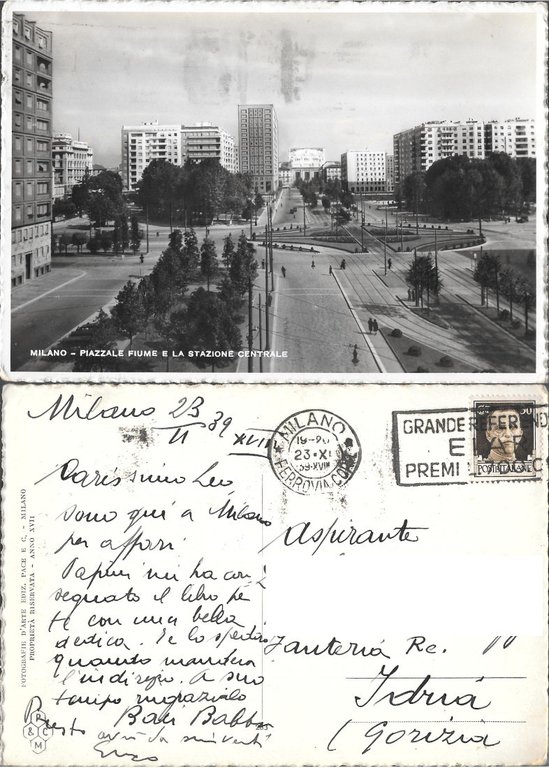 MILANO - PIAZZALE FIUME E LA STAZIONE CENTRALE
Milano 23/11 39 XVIII
MILANO
19-20
23·XI
39-XVIII
FERROVIA
GRANDE REFEREND
E
PREMI
POSTE ITALIANE
50
FOTOGRAFIE D'ARTE EDIZ. PACE E C. - MILANO
PROPRIETÀ RISERVATA - ANNO XVII
Carissimo Leo
sono qui a Milano
per affari
Papini mi ha con
segnato il libro pe
te con una bella
dedica. Te lo spedirò
quando manderai
l'indirizzo. A suo
tempo ringrazialo
Baci Babbo
Presto
Enzo
R & C M
Aspirante
Fanteria Re.
Idria
(Gorizia